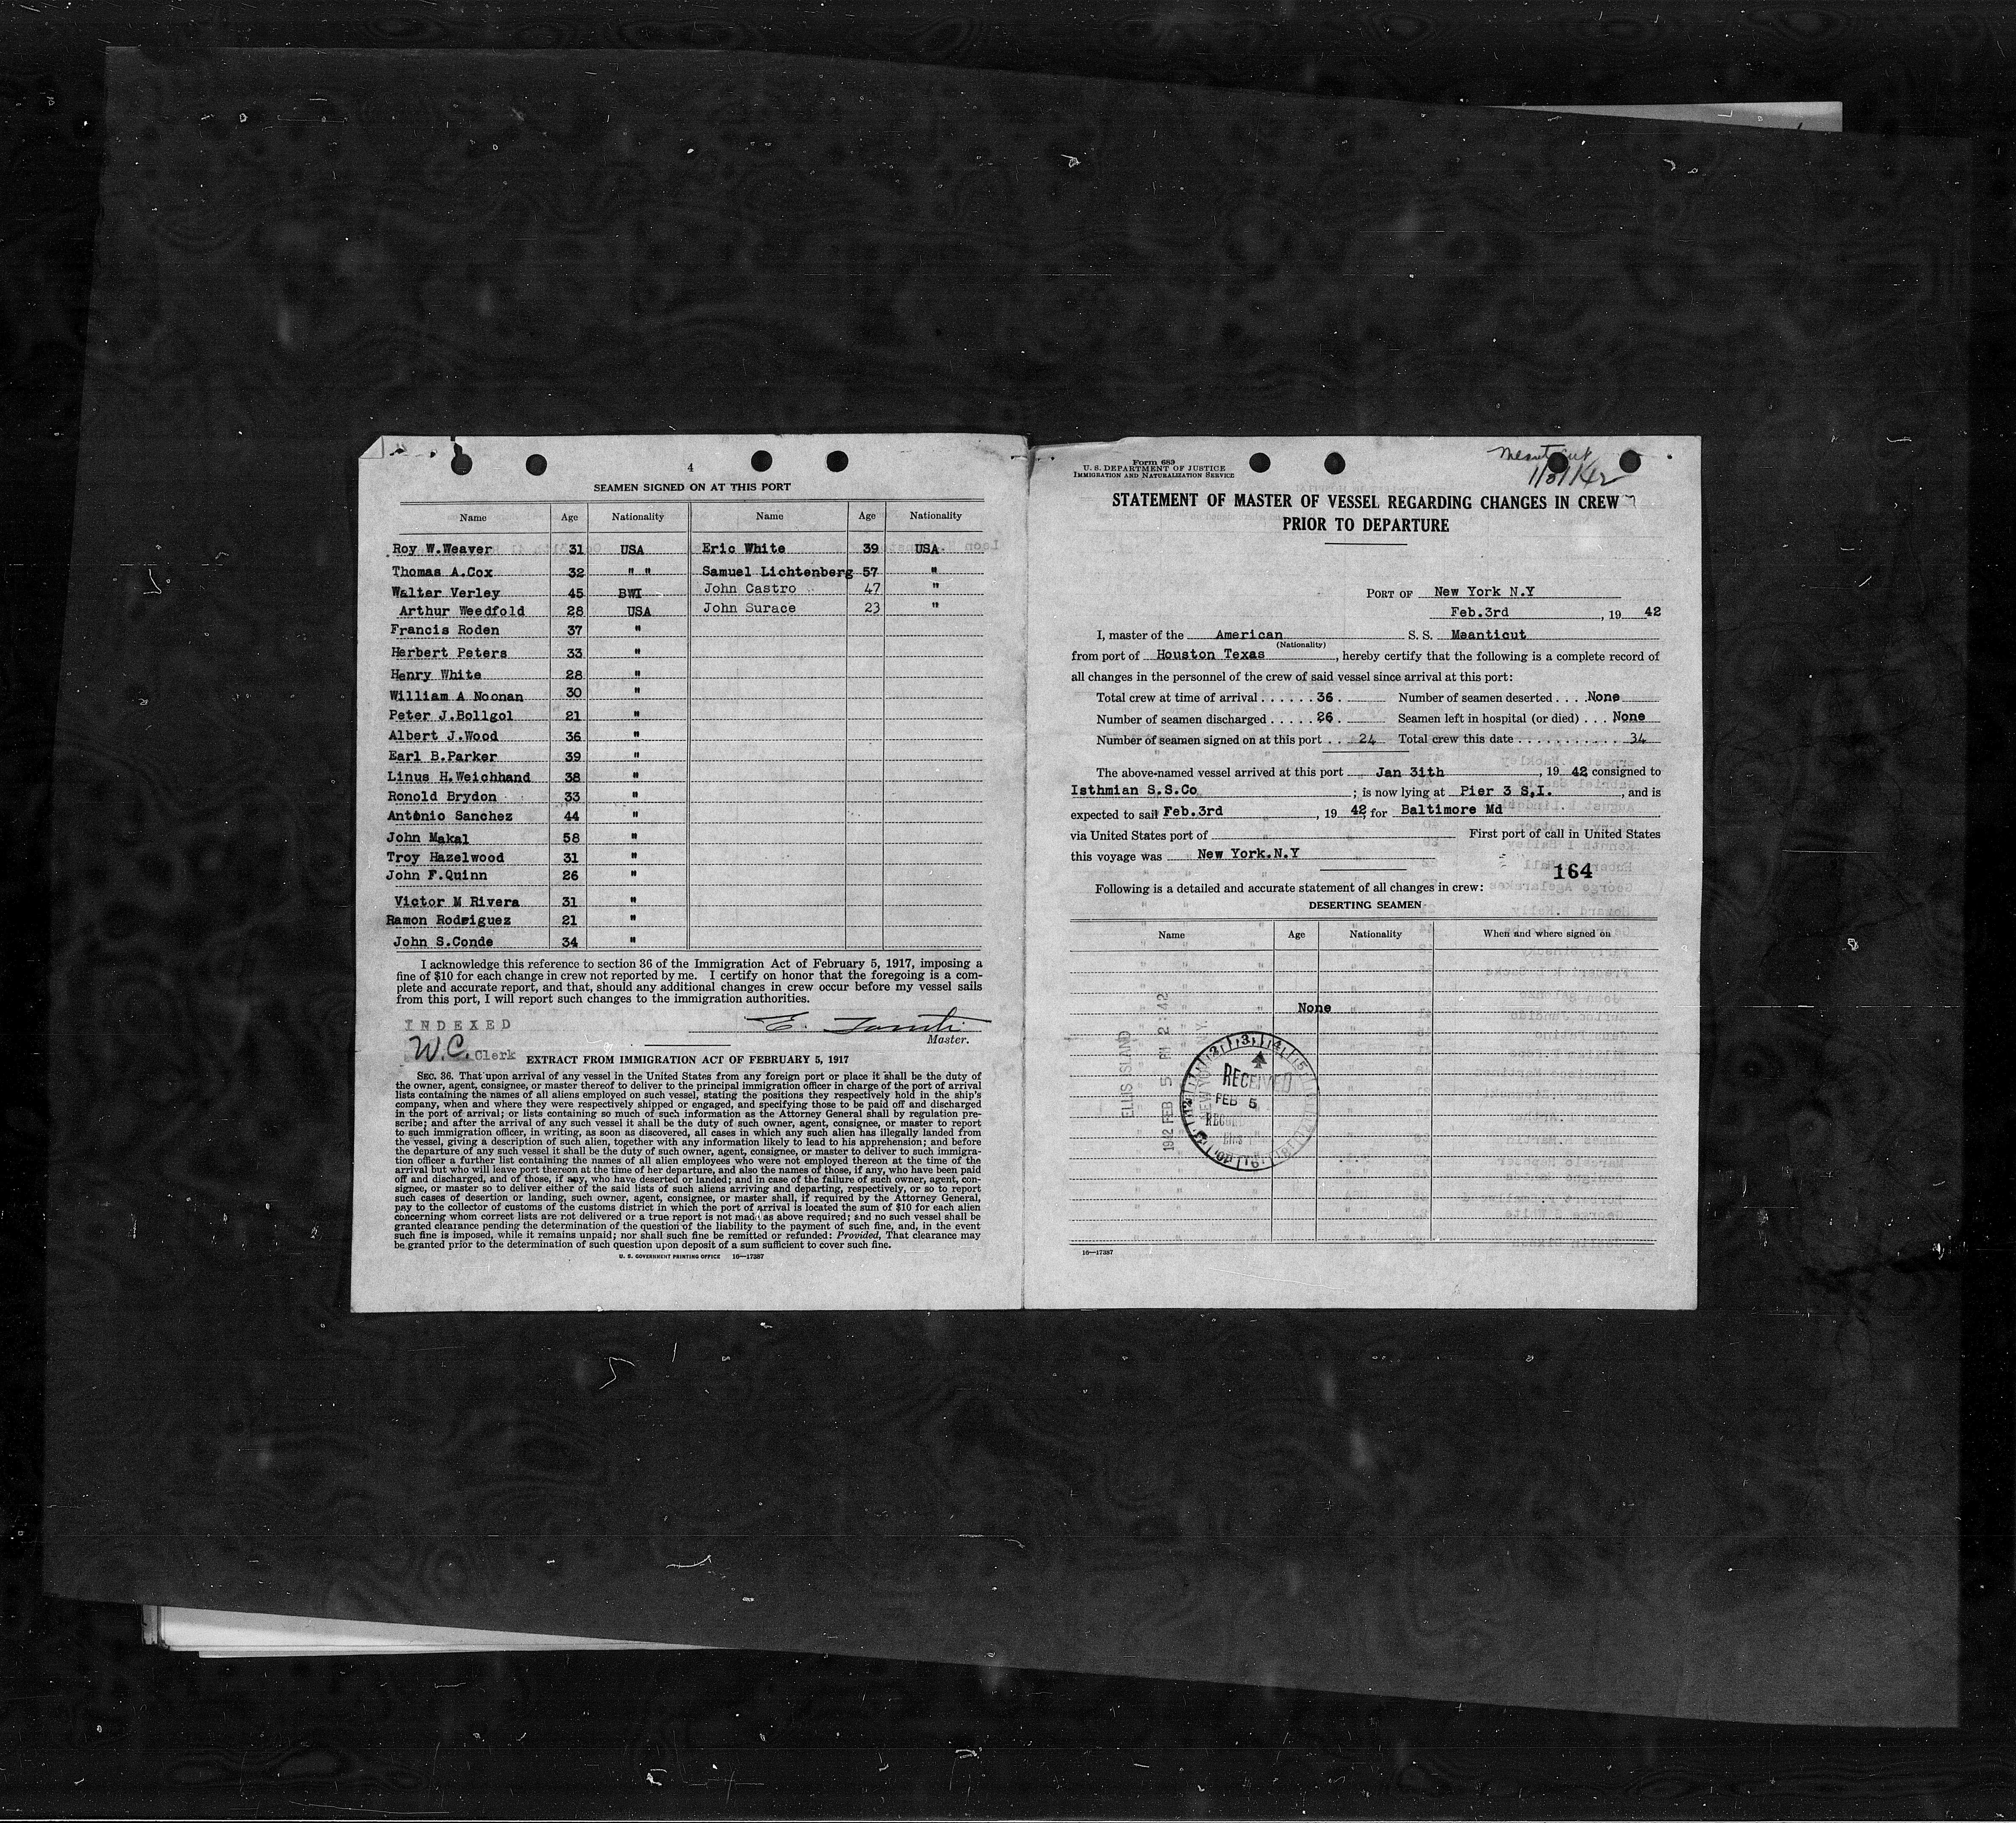 4
SEAMEN SIGNED ON AT THIS PORT
Name Age Nationality Name Age Nationality
Roy W.Weaver 31 USA Eric White 39 USA
Thomas A.Cox 32 " " Samuel Lichtenberg 57 "
Walter Verley 45 BWI John Castro 47 "
Arthur Weedfold 28 USA John Surace 23 "
Francis Roden 37 "
Herbert Peters 33 "
Henry White 28 "
William A Noonan 30 "
Peter J.Bollgol 21 "
Albert J.Wood 36 "
Earl B.Parker 39 "
Linus H.Weichhand 38 "
Ronold Brydon 33 "
Antonio Sanchez 44 "
John Makal 58 "
Troy Hazelwood 31 "
John F.Quinn 26 "
Victor M Rivera 31 "
Ramon Rodriguez 21 "
John S.Conde 34 "
I acknowledge this reference to section 36 of the Immigration Act of February 5, 1917, imposing a
fine of $10 for each change in crew not reported by me. I certify on honor that the foregoing is a com-
plete and accurate report, and that, should any additional changes in crew occur before my vessel sails
from this port, I will report such changes to the immigration authorities.
INDEXED
E.
Master.
W.C. Clerk
EXTRACT FROM IMMIGRATION ACT OF FEBRUARY 5, 1917
SEC. 36. That upon arrival of any vessel in the United States from any foreign port or place it shall be the duty of
the owner, agent, consignee, or master thereof to deliver to the principal immigration officer in charge of the port of arrival
lists containing the names of all aliens employed on such vessel, stating the positions they respectively hold in the ship's
company, when and where they were respectively shipped or engaged, and specifying those to be paid off and discharged
in the port of arrival; or lists containing so much of such information as the Attorney General shall by regulation pre-
scribe; and after the arrival of any such vessel it shall be the duty of such owner, agent, consignee, or master to report
to such immigration officer, in writing, as soon as discovered, all cases in which any such alien has illegally landed from
the vessel, giving a description of such alien, together with any information likely to lead to his apprehension; and before
the departure of any such vessel it shall be the duty of such owner, agent, consignee, or master to deliver to such immigra-
tion officer a further list containing the names of all alien employees who were not employed thereon at the time of the
arrival but who will leave port thereon at the time of her departure, and also the names of those, if any, who have been paid
off and discharged, and of those, if any, who have deserted or landed; and in case of the failure of such owner, agent, con-
signee, or master so to deliver either of the said lists of such aliens arriving and departing, respectively, or so to report
such cases of desertion or landing, such owner, agent, consignee, or master shall, if required by the Attorney General,
pay to the collector of customs of the customs district in which the port of arrival is located the sum of $10 for each alien
concerning whom correct lists are not delivered or a true report is not made as above required; and no such vessel shall be
granted clearance pending the determination of the question of the liability to the payment of such fine, and, in the event
such fine is imposed, while it remains unpaid; nor shall such fine be remitted or refunded: Provided, That clearance may
be granted prior to the determination of such question upon deposit of a sum sufficient to cover such fine.
U. S. GOVERNMENT PRINTING OFFICE 16—17387
Form 689
U. S. DEPARTMENT OF JUSTICE
IMMIGRATION AND NATURALIZATION SERVICE
Meanticut
1/31/42
STATEMENT OF MASTER OF VESSEL REGARDING CHANGES IN CREW
PRIOR TO DEPARTURE
PORT OF New York N.Y
Feb.3rd, 19 42
I, master of the American S. S. Meanticut
(Nationality)
from port of Houston Texas, hereby certify that the following is a complete record of
all changes in the personnel of the crew of said vessel since arrival at this port:
Total crew at time of arrival . . . . . . 36 . Number of seamen deserted . . . . None
Number of seamen discharged . . . . . 26 . Seamen left in hospital (or died) . . . None
Number of seamen signed on at this port . . 24 Total crew this date . . . . . . . . . . . . 34
The above-named vessel arrived at this port Jan 31th, 19 42 consigned to
Isthmian S.S.Co ; is now lying at Pier 3 S.I., and is
expected to sail Feb.3rd, 19 42, for Baltimore Md
via United States port of First port of call in United States
this voyage was New York.N.Y
164
Following is a detailed and accurate statement of all changes in crew:
DESERTING SEAMEN
Name Age Nationality When and where signed on
None
ELLIS ISLAND
1942 FEB 5 PM 2 42
RECEIVED
FEB 5
16—17387